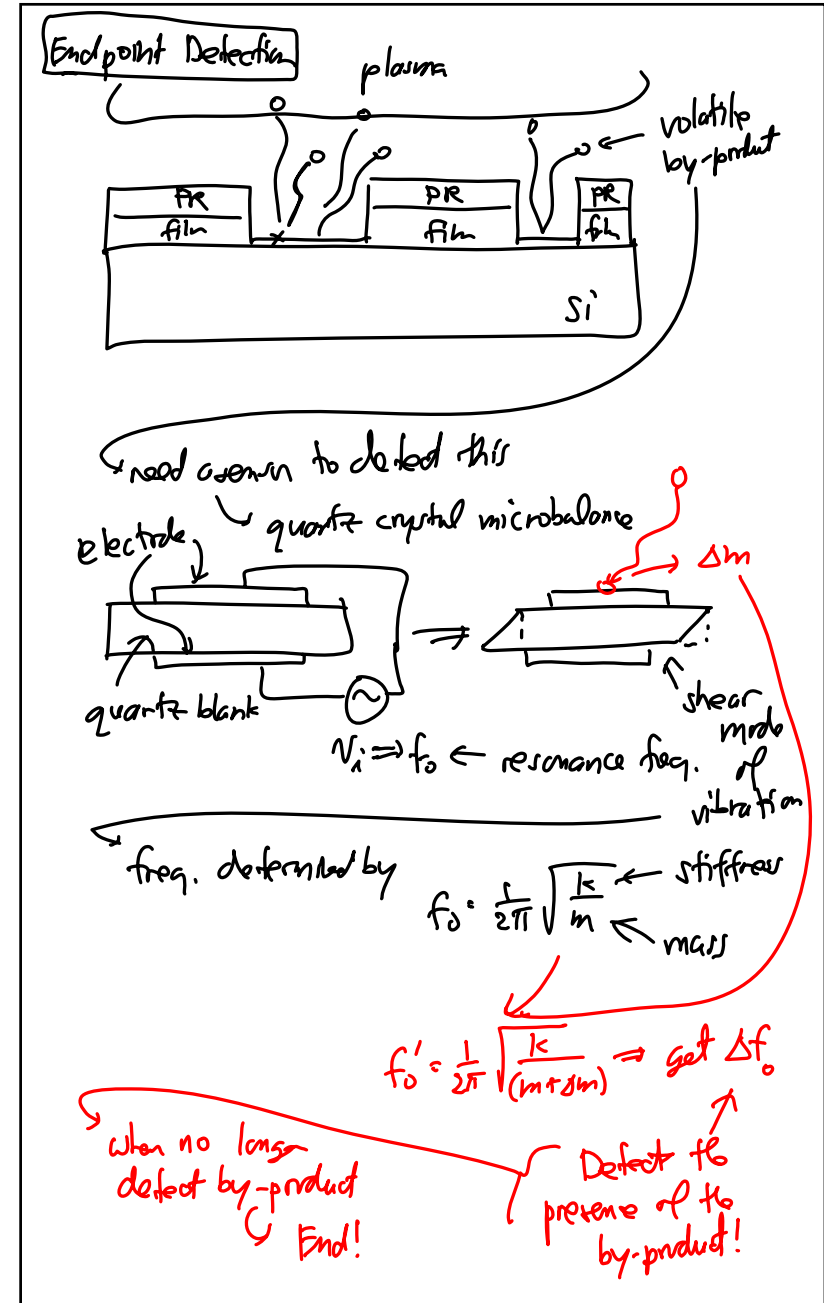 Endpoint Detection
plasma
volatile
by-product
PR
film
PR
film
PR
film
Si
need a sensor to detect this
quartz crystal microbalance
electrode
Δm
quartz blank
shear
mode
of
vibration
v_i ⇒ f₀ ← resonance freq.
freq. determined by
f₀ = 1/2π √(k/m)
stiffness
mass
f₀' = 1/2π √(k/(m+Δm)) ⇒ get Δf₀
when no longer
detect by-product
End!
Detect the
presence of the
by-product!